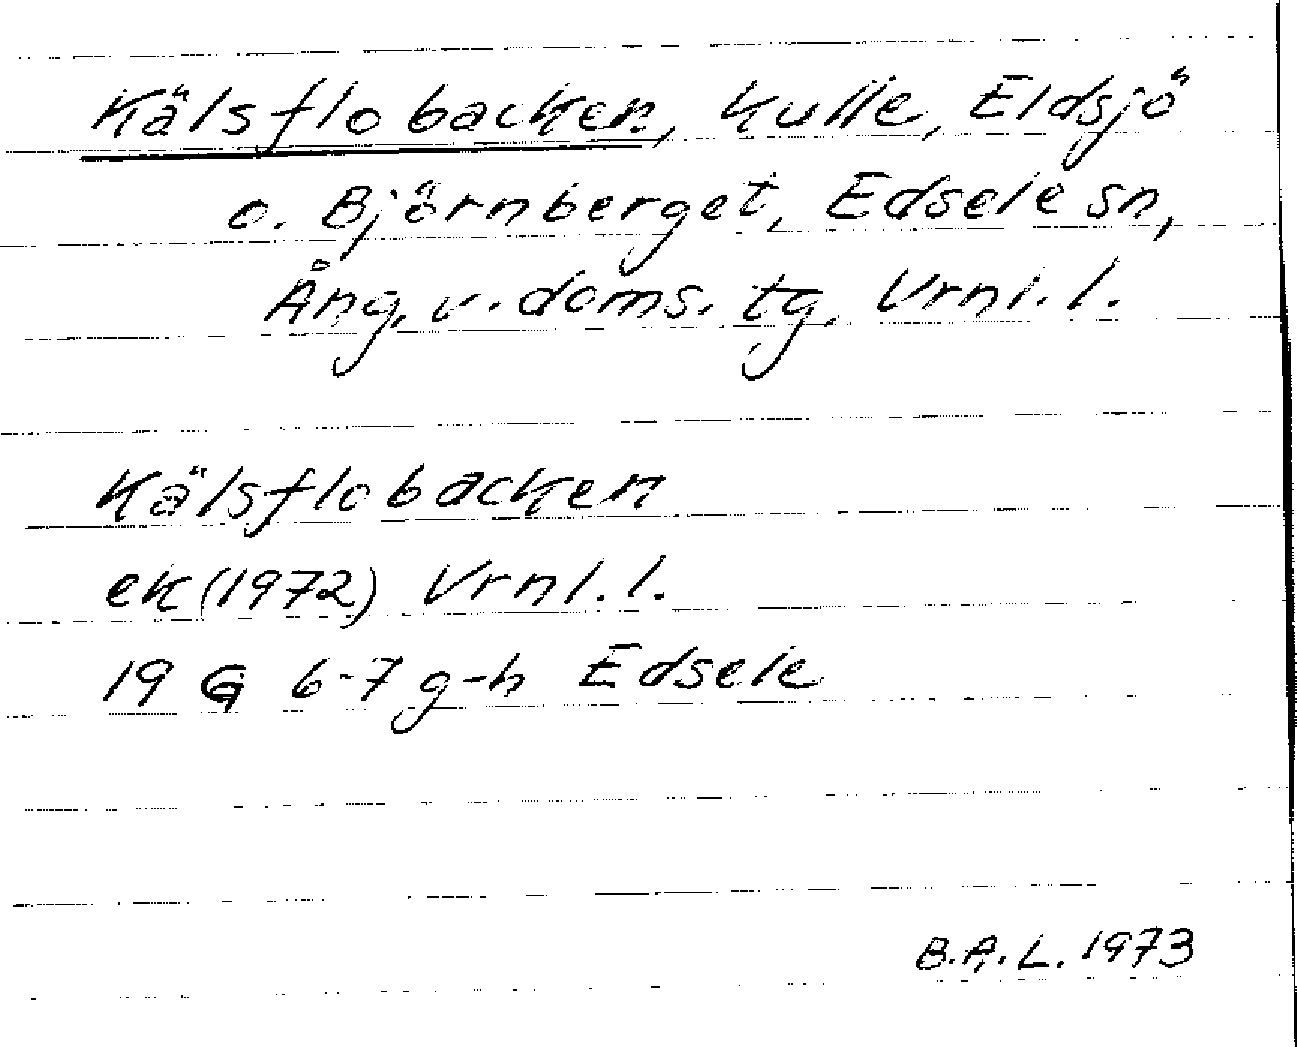 Kälsflobacken, kulle, Eldsjö
o. Björnberget, Edsele sn,
Ång. v. doms. tg, Vrnl. l.
Kälsflobacken
ek (1972) Vrnl. l.
19 G 6-7 g-h Edsele
B.A.L. 1973